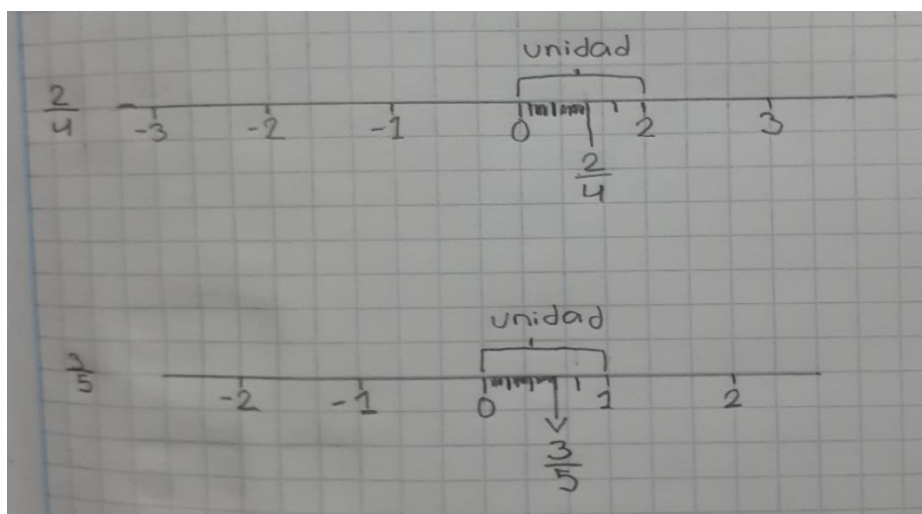 unidad
2/4
-3 -2 -1 0 2 3
2/4
unidad
3/5
-2 -1 0 1 2
3/5